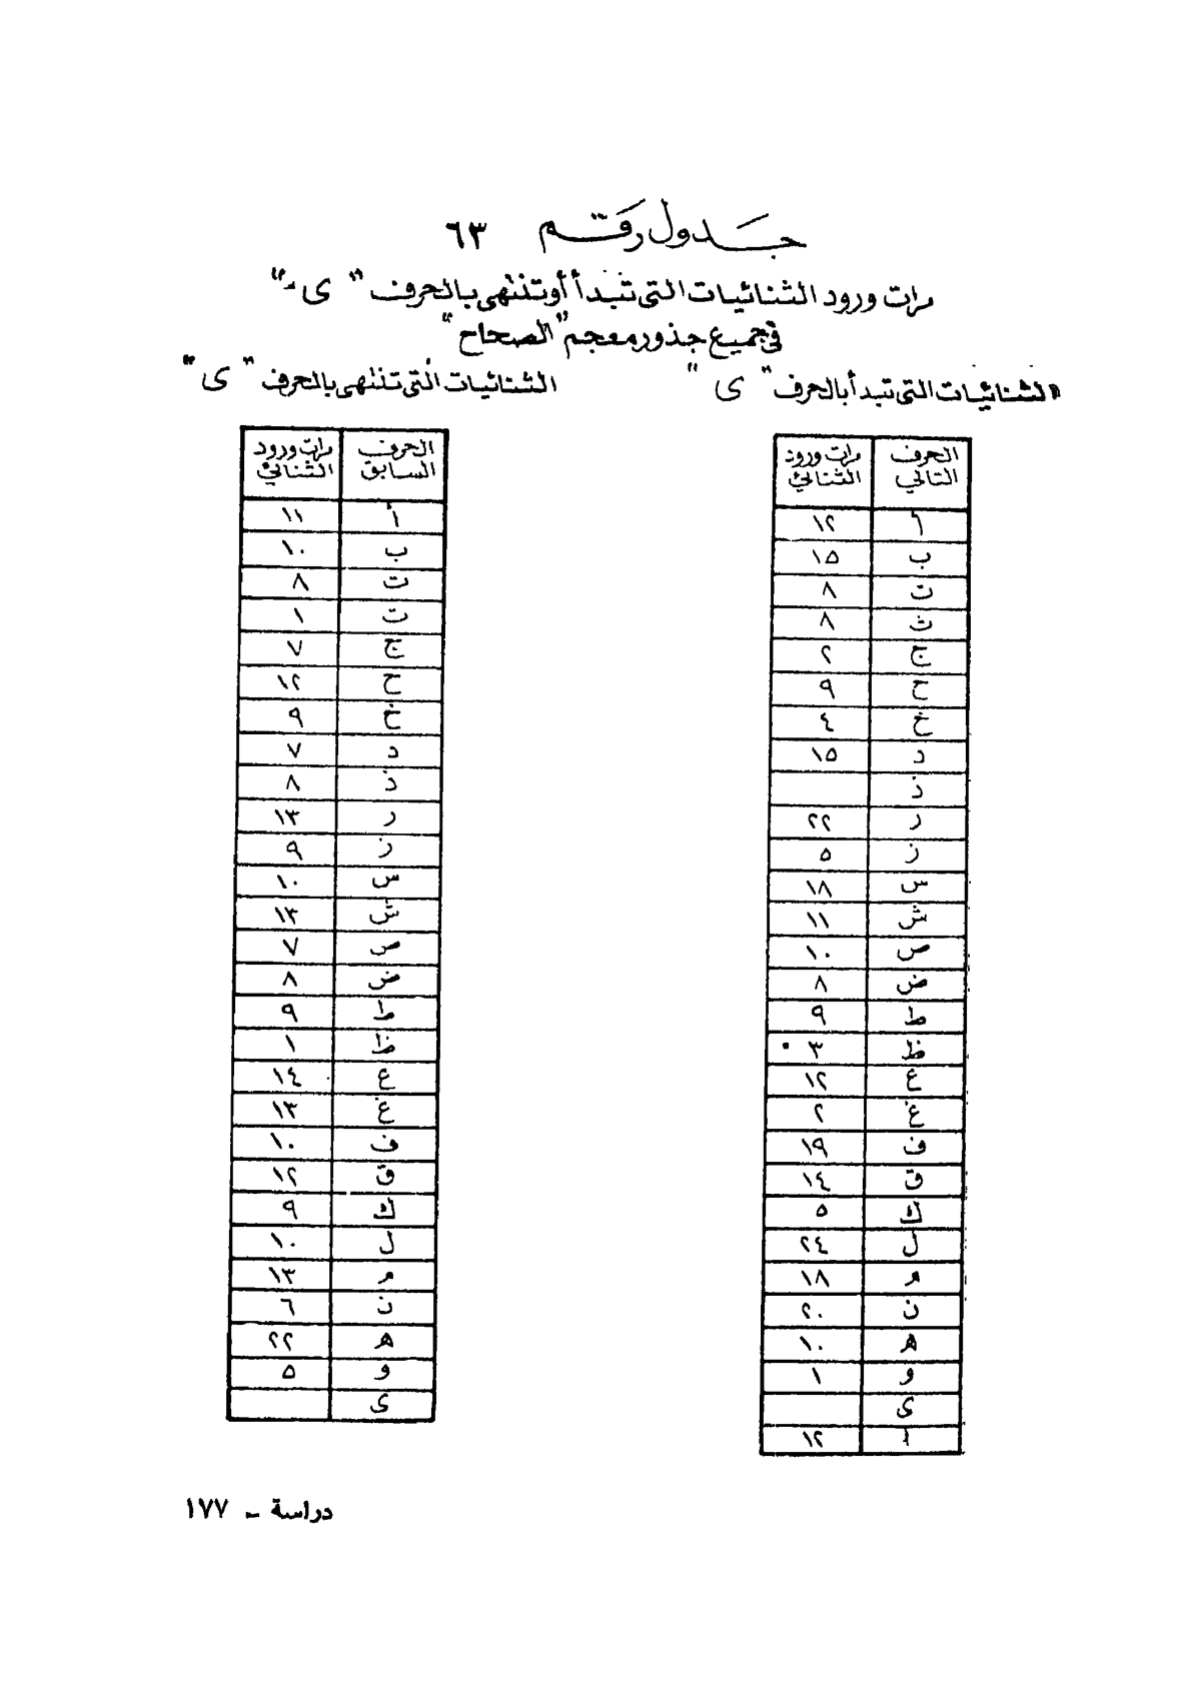 جدول رقم ٦٣
مرات ورود الثنائيات التى تبدأ أو تنتهى بالحرف " ى "
فى جميع جذور معجم "الصحاح"
الثنائيات التى تبدأ بالحرف " ى "
الحرف التالي | مرات ورود الثنائي
أ | ١٢
ب | ١٥
ت | ٨
ث | ٨
ج | ٢
ح | ٩
خ | ٤
د | ١٥
ذ |
ر | ٢٢
ز | ٥
س | ١٨
ش | ١١
ص | ١٠
ض | ٨
ط | ٩
ظ | ٣
ع | ١٢
غ | ٢
ف | ١٩
ق | ١٤
ك | ٥
ل | ٢٤
م | ١٨
ن | ٢٠
ه | ١٠
و | ١
ى |
ا | ١٢
الثنائيات التى تنتهى بالحرف " ى "
الحرف السابق | مرات ورود الثنائي
أ | ١١
ب | ١٠
ت | ٨
ث | ١
ج | ٧
ح | ١٢
خ | ٩
د | ٧
ذ | ٨
ر | ١٣
ز | ٩
س | ١٠
ش | ١٣
ص | ٧
ض | ٨
ط | ٩
ظ | ١
ع | ١٤
غ | ١٣
ف | ١٠
ق | ١٢
ك | ٩
ل | ١٠
م | ١٣
ن | ٦
ه | ٢٢
و | ٥
ى |
دراسة - ١٧٧